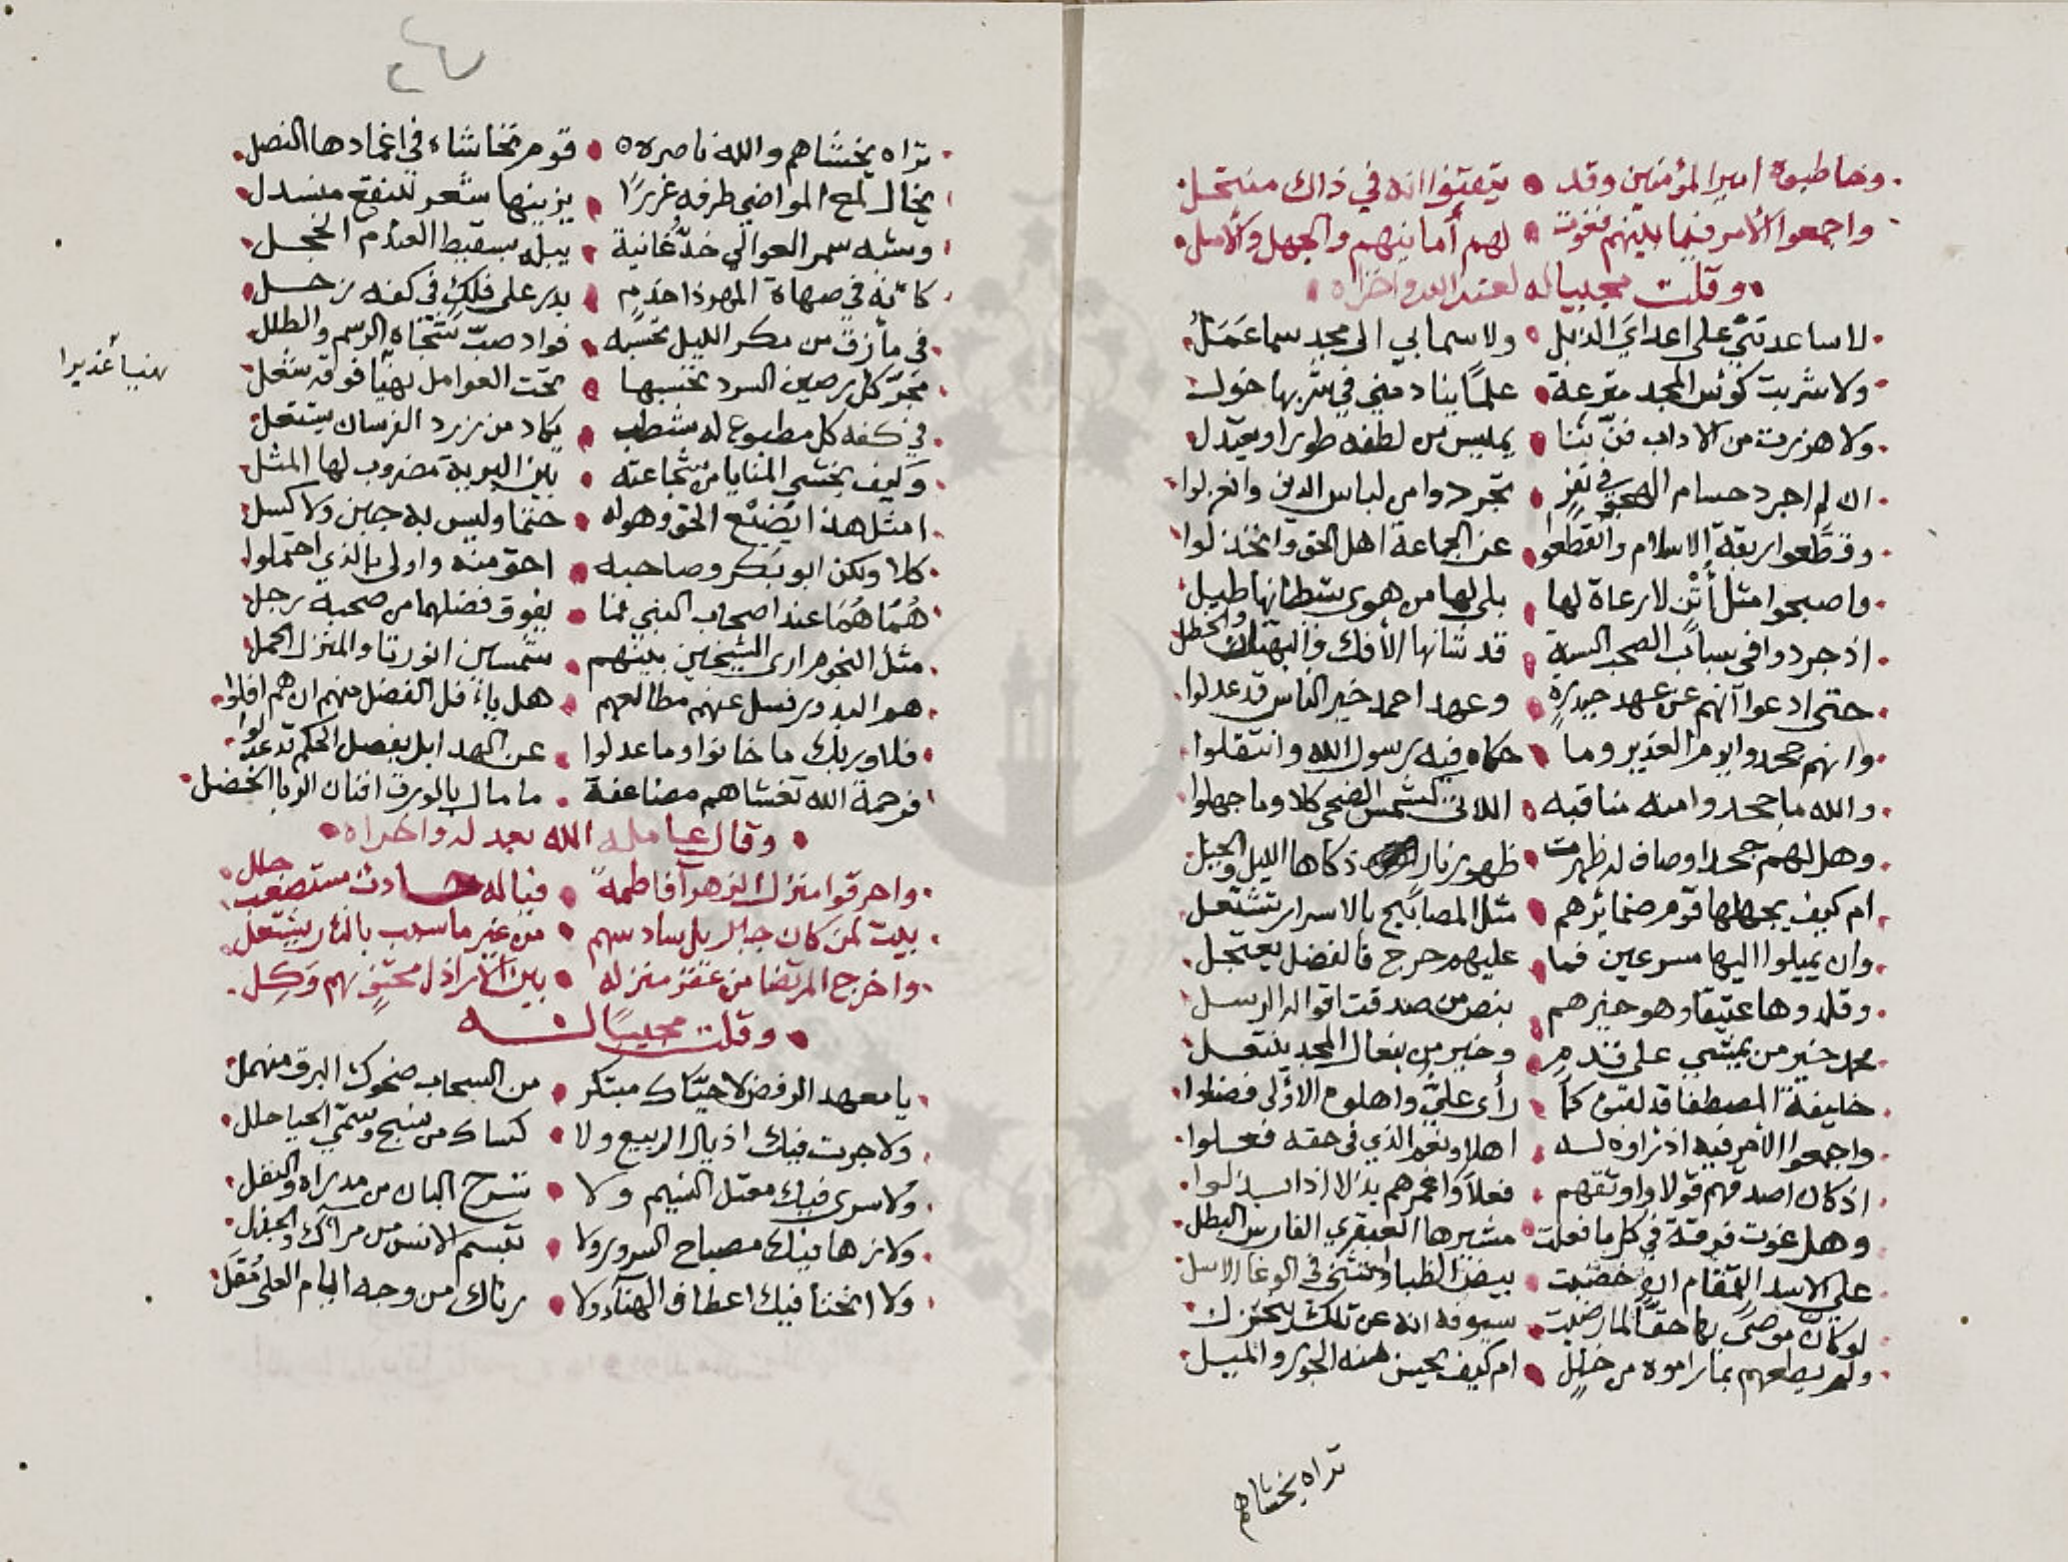 وخاطبوه امير المؤمنين وقد • تيقنوا انه في ذاك منتحل
واجمعوا الأمر فيما بينهم فغوت • لهم أمانيهم والجهل والأمل
وقلت مجيبا له لعنه الله واخزاه
لا ساعدتني على اعداي الذبل • ولا سما بي الى مجد سما عمل
ولا شربت كوئس المجد مترعة • علما ينادمني في شربها خول
ولا هززت من الاداب فن ثنا • يميس من لطفه طورا ويعتدل
ان لم اجرد حسام الحق في نفر • تجردوا من لباس الدين وانعزلوا
وقطعوا ربقة الاسلام وانقطعوا • عن الجماعة اهل الحق وانخذلوا
واصبحوا مثل أتن لا رعاة لها • بلى لها من هوى شيطانها طيل
اذ جردوا في سباب الصحب السنة • قد شانها الأفك والبهتان والخطل
حتى ادعوا انهم عن عهد حيدرة • وعهد احمد خير الناس قد عدلوا
وانهم جحدوا يوم الغدير وما • حكاه فيه رسول الله وانتقلوا
والله ما جحدوا منه مناقبه • اللاتي كشمس الضحى كلا وما جهلوا
وهل لهم جحد اوصاف له ظهرت • ظهور نار ذكاها الليل والجبل
ام كيف يجهلها قوم ضمائرهم • مثل المصابيح بالاسرار تشتعل
وان يميلوا اليها مسرعين فما • عليهم حرج فالفضل يعتجل
وقلدوها عتيقا وهو خيرهم • بنص من صدقت اقواله الرسل
محمد خير من يمشي على قدم • وخير من بنعال المجد ينتعل
خليفة المصطفا قد لقبوه كما • رأى علي واهلوه الاولى فضلوا
واجمعوا الأمر فيه اذ راوه له • اهلا ونعم الذي في حقه فعلوا
اذ كان اصدقهم قولا واوثقهم • فعلا واغمرهم بذلا اذا بذلوا
وهل غوت فرقة في كل ما فعلت • مشيرها العبقري الفارس البطل
علي الاسد القمقام ان خضبت • بيض الظبا وانتشى في الوغا الاسل
لو كان موصى بها حقا لما رضيت • سيوفه انه عن تلك يختزل
ولم يطعهم بما راموه من خلل • ام كيف يحسن منه الجور والميل
تراه يخشاهم
تراه يخشاهم والله ناصره • قوم تخاشاه في اغمادها النصل
يخال لمح المواضي طرفه غررا • يزينها شعر للنقع منسدل
وشبه سمر العوالي خد غانية • يبله بسقيط العندم الخجل
كانه في صهاة المهر ذا حذم • بدر على فلك في كفه زحل
في مأزق من مكر الليل تحسبه • فواد صب شجاه الرسم والطلل
تجر كل رصين السرد تحسبها • تحت العوامل نهيا فوقه شعل
نهيا أغديرا
في كفه كل مطبوع له شطب • يكاد من زرد الفرسان يشتعل
وكيف يخشى المنايا من شجاعته • بين البرية مضروب لها المثل
امثل هذا يضيع الحق وهو له • حتما وليس به جبن ولا كسل
كلا ولكن ابو بكر وصاحبه • احق منه واولى بالذي احتملوا
هما هما عند اصحاب النبي فما • يفوق فضلهما من صحبه رجل
مثل النجوم ارى الشيخين بينهم • شمسين انورتا والمنزل الحمل
هم البدور فسل عنهم مطالعهم • هل ياءفل الفضل منهم ان هم افلوا
فلا وربك ما خانوا وما عدلوا • عن الهدا بل بفصل الحكم قد عدلوا
فرحمة الله تغشاهم مضاعفة • ما مال بالورق افنان الربا الخضل
وقال عامله الله بعدله واخزاه
واحرقوا منزل الزهرآ فاطمة • فيا له حادث مستصعب جلل
بيت لمن كان جبريل سادسهم • من غير ما سبب بالنار يشتعل
واخرج المرتضا من عقر منزله • بين الأراذل محتف بهم وكل
وقلت مجيبا له
يا معهد الرفض لا حياك مبتكر • من السحاب ضحوك البرق منهمل
ولا جرت فيك اذيال الربيع ولا • كساك من نسج وسمي الحيا حلل
ولا سرى فيك معتل النسيم ولا • سرح البان من مدراه والنفل
ولا زها فيك مصباح السرور ولا • تبسم الانس من مرآك والجذل
ولا انحنا فيك اعطاف الهنآء ولا • رناك من وجه ايام العلى مقل